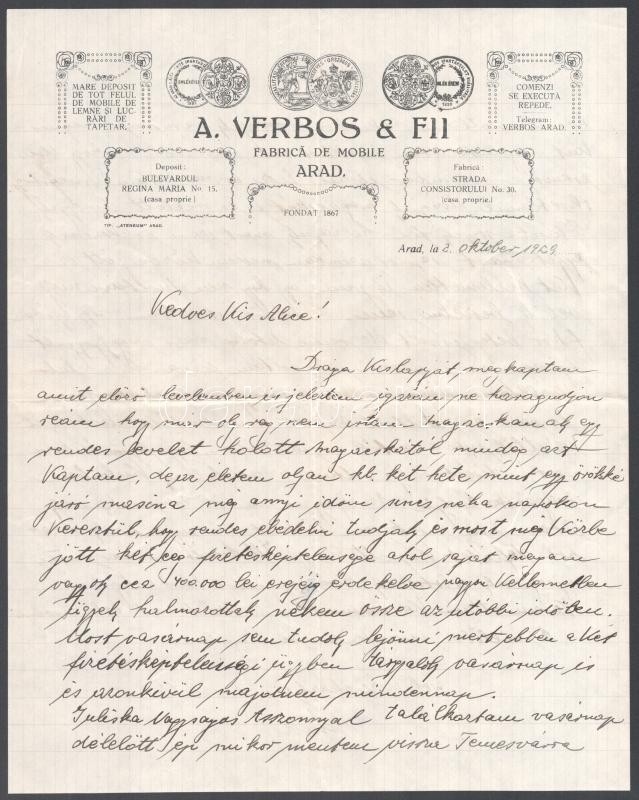 MARE DEPOSIT
DE TOT FELUL
DE MOBILE DE
LEMNE ȘI LUC-
RĂRI DE
TAPETAR.
COMENZI
SE EXECUTĂ
REPEDE.
Telegram:
VERBOS ARAD.
A. VERBOS & FII
FABRICĂ DE MOBILE
ARAD.
Deposit:
BULEVARDUL
REGINA MARIA No 15.
(casa proprie)
FONDAT 1867
Fabrică:
STRADA
CONSISTORULUI No. 30.
(casa proprie)
TIP. „ATENEUM" ARAD.
Arad, la 2. Oktober, 1929
Kedves Kis Alice!
Drága Kislapját, megkaptam
amit előző levelemben is jeleztem igazán ne haragudjon
reám hogy már oly rég nem írtam magácskának egy
rendes levelet holott magácskától mindég azt
kaptam, de az életem olyan kb. két hete mint egy örökké
járó masina még annyi időm sincs néha napokon
keresztül, hogy rendes ebédelni tudjak és most meg közbe
jött két cég fizetésképtelensége ahol saját magam
vagyok cca 400.000 lei erejéig érdekelve nagyon kellemetlen
ügyek halmozottak nekem össze az utóbbi időben.
Most vasárnap sem tudok lejönni mert ebben a két
fizetésképtelenségi ügyben tárgyalok vasárnap is
és azonkívül majdnem mindennap.
Juliska Nagyságos Asszonnyal találkoztam vasárnap
délelőtt ép mikor mentem vissza Temesvárra